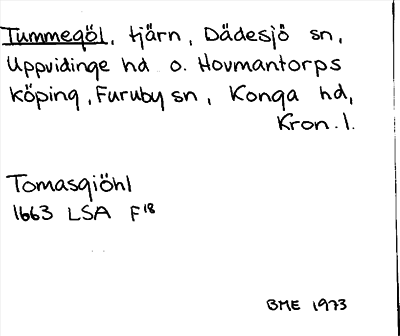 Tummegöl, tjärn, Dädesjö sn,
Uppvidinge hd o. Hovmantorps
köping, Furuby sn, Konga hd,
Kron. l.
Tomasgiöhl
1663 LSA F18
BME 1973